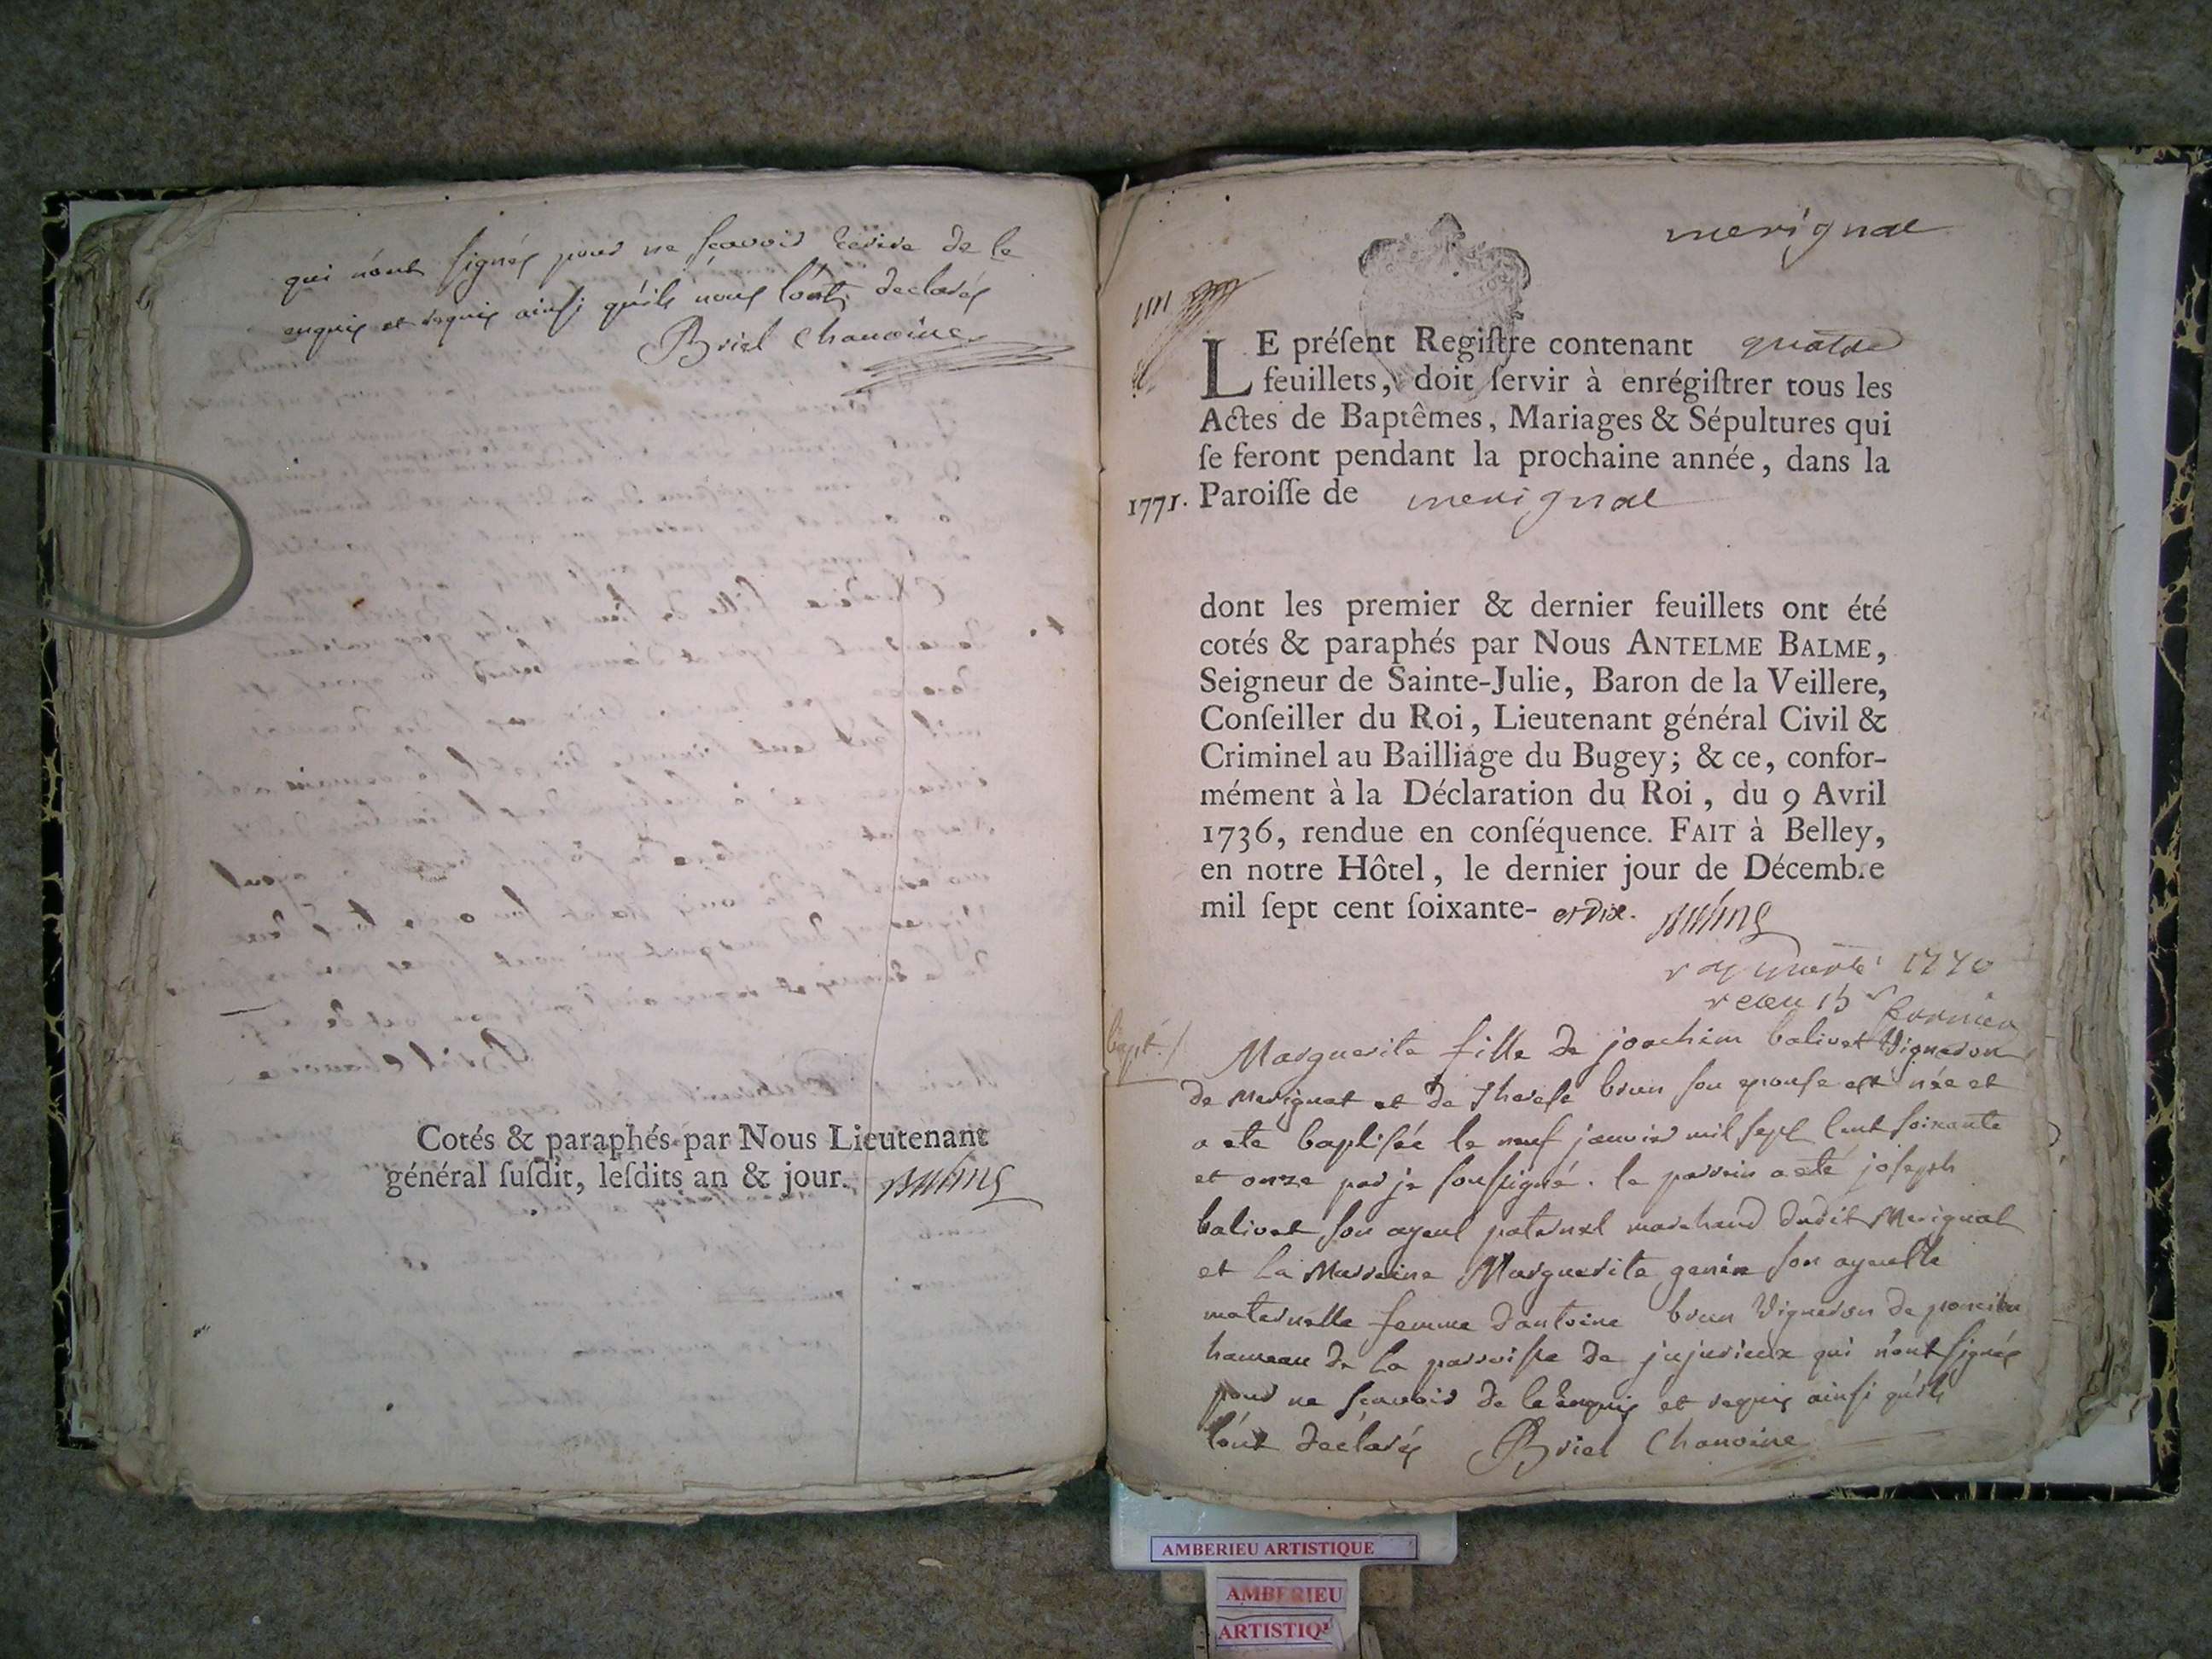 qui n'ont signés pour ne sçavoir écrire de le
enquis et requis ainsi qu'ils nous l'ont declarés
Briel chanoine
Cotés & paraphés par Nous Lieutenant
général ſuſdit, leſdits an & jour.
merignat
LE préſent Regiſtre contenant quatre
feuillets, doit ſervir à enrégiſtrer tous les
Actes de Baptêmes, Mariages & Sépultures qui
ſe feront pendant la prochaine année, dans la
1771. Paroiſſe de merignat
dont les premier & dernier feuillets ont été
cotés & paraphés par Nous ANTELME BALME,
Seigneur de Sainte-Julie, Baron de la Veillere,
Conſeiller du Roi, Lieutenant général Civil &
Criminel au Bailliage du Bugey; & ce, confor-
mément à la Déclaration du Roi, du 9 Avril
1736, rendue en conſéquence. FAIT à Belley,
en notre Hôtel, le dernier jour de Décembre
mil ſept cent ſoixante- et dix.
1770
bapt.
Marguerite fille de joachim balivet Vigneron
de Merignat et de Therese brun son epouse est née et
a ete baptisée le neuf janvier mil sept cent soixante
et onze par je soussigné. le parrin a eté joseph
balivet son ayeul paternel marchand dudit Merignat
et la Marraine Marguerite genin son ayeulle
maternelle femme d'antoine brun Vigneron de poncieu
hameau de la parroisse de jujurieux qui n'ont signés
pour ne sçavoir de le enquis et requis ainsi qu'ils
l'ont declarés Briel Chanoine
AMBERIEU ARTISTIQUE
AMBERIEU
ARTISTIQ